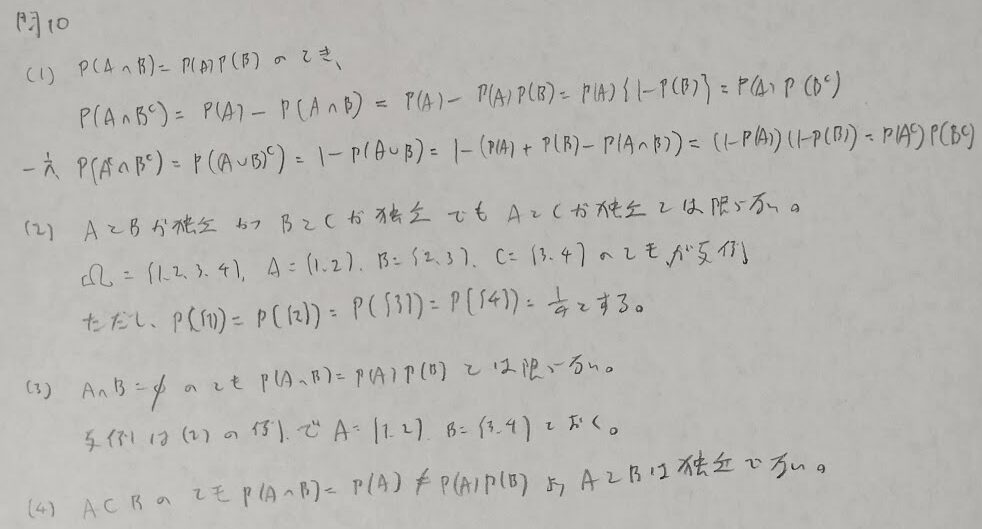 問10
(1) P(A∩B)=P(A)P(B) のとき、
P(A∩B^c) = P(A) - P(A∩B) = P(A) - P(A)P(B) = P(A){1-P(B)} = P(A)P(B^c)
一方 P(A^c∩B^c) = P((A∪B)^c) = 1-P(A∪B) = 1-(P(A)+P(B)-P(A∩B)) = (1-P(A))(1-P(B)) = P(A^c)P(B^c)
(2) AとBが独立 かつ BとCが独立 でも AとCが独立とは限らない。
Ω = {1,2,3,4}, A={1,2}, B={2,3}, C={3,4} のときが反例
ただし、P({1}) = P({2}) = P({3}) = P({4}) = 1/4 とする。
(3) A∩B=∅ のとき P(A∩B)=P(A)P(B) とは限らない。
反例は(2)の例で A={1,2}, B={3,4} とおく。
(4) A⊂B のとき P(A∩B)=P(A)≠P(A)P(B) より AとBは独立でない。